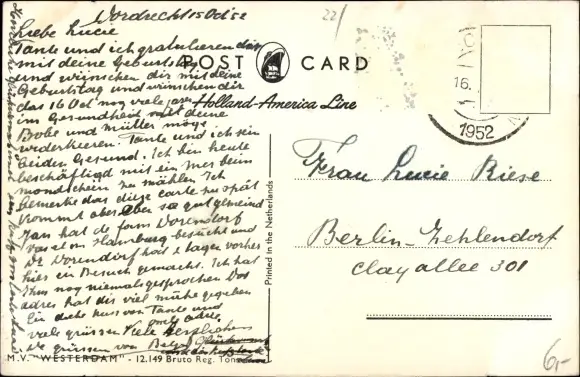 Dordrecht 15 Oct '52
22/
Liebe Lucie
Tante und ich gratulieren dir
mit deine Geburtstag
und wünschen dir mit deine
Geburtstag und wünschen dir
das 16 Oct nog viele jaren
im Gesundheit mit deine
Bobe und mütter möge
widerkeeren. Tante und ich sein
beiden Gesund. Ich bin heute
beschäftigd mit ein Mes beim
mondschein zu mählen. Ich
bemerke das diese carte zu spät
kommt aber eben so gut gemeind
Jan hat de form Dorendorf
van Hamburg besucht und
Dr Dorendorf had 2 tagen vorher
hier ein Besuch gemacht. Ich hat
ihm nog niemals gesprochen. Das
adres hat dis viel mühe gegeben
Ein dicke kus von Tante und
viele grüssen Viele herzlichen
grüssen von
POST CARD
Holland-America Line
Printed in the Netherlands
16.
1952
Frau Lucie Riese
Berlin-Zehlendorf
clayallee 301
M.V. "WESTERDAM" - 12.149 Bruto Reg. Tons
6,-